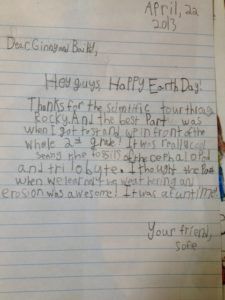 April, 22
2013
Dear Ginny and
Hey guys. Happy Earth Day!
Thanks for the scientific tour through
Rocky. And the best Part was
when I got to stand up in front of the
whole 2nd grade! It was really cool
seeing the fossils of the cephalopod
and trilobyte. I thought the Part
when we learned the weathering and
erosion was awesome! It was a fun time
Your friend,